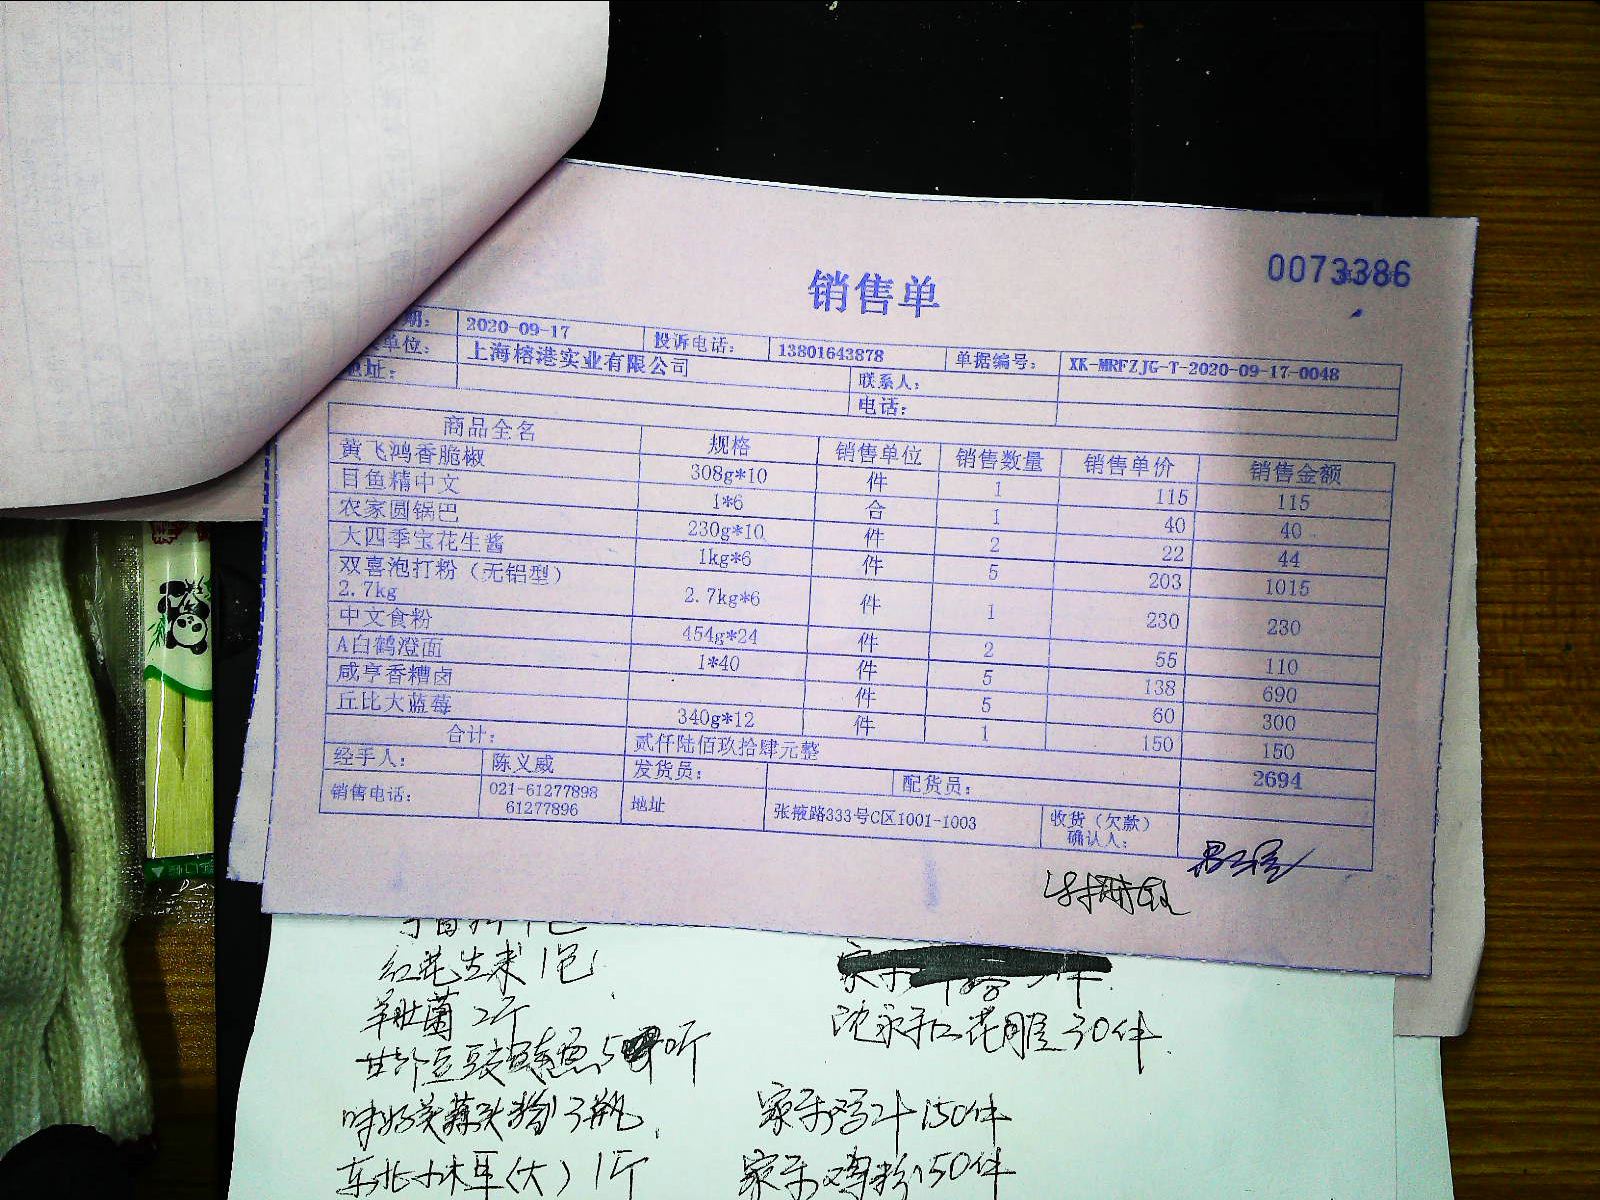 0073386
销售单
期： 2020-09-17 投诉电话： 13801643878 单据编号： XK-MRFZJG-T-2020-09-17-0048
单位： 上海榕港实业有限公司 联系人：
地址： 电话：
商品全名 规格 销售单位 销售数量 销售单价 销售金额
黄飞鸿香脆椒 308g*10 件 1 115 115
目鱼精中文 1*6 合 1 40 40
农家圆锅巴 230g*10 件 2 22 44
大四季宝花生酱 1kg*6 件 5 203 1015
双喜泡打粉（无铝型）2.7kg 2.7kg*6 件 1 230 230
中文食粉 454g*24 件 2 55 110
A白鹤澄面 1*40 件 5 138 690
咸亨香糟卤 件 5 60 300
丘比大蓝莓 340g*12 件 1 150 150
合计： 贰仟陆佰玖拾肆元整 2694
经手人： 陈义威 发货员： 配货员：
销售电话： 021-61277898 61277896 地址 张掖路333号C区1001-1003 收货（欠款）确认人：
红花生米1包
羊肚菌2斤
沈永和花雕30件
家乐鸡汁150件
东北小木耳(大)1斤
家乐鸡粉150件